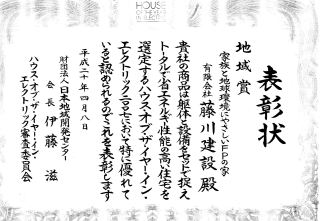 HOUSE
OF THE YEAR
IN ELECTRIC
表彰状
地域賞
家族と地球環境にやさしいFPの家
有限会社 藤川建設 殿
貴社の商品は躯体と設備をセットで捉え
トータルで省エネルギー性能の高い住宅を
選定するハウス・オブ・ザ・イヤー・イン・
エレクトリック2007において特に優れて
いると認められるのでこれを表彰します
平成二十年四月八日
財団法人 日本地域開発センター
会長 伊藤 滋
ハウス・オブ・ザ・イヤー・イン・
エレクトリック審査委員会